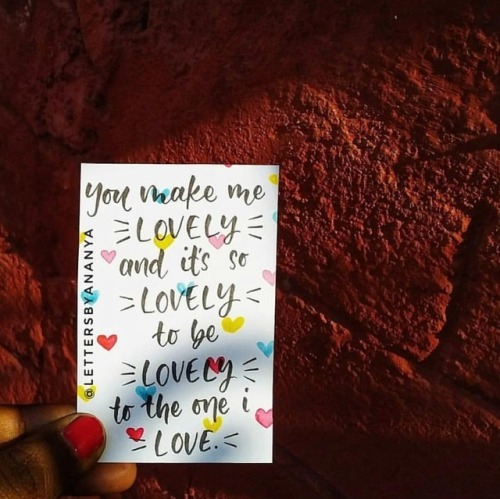 you make me
LOVELY
and it's so
LOVELY
to be
LOVELY
to the one i
LOVE.
@LETTERSBYANANYA